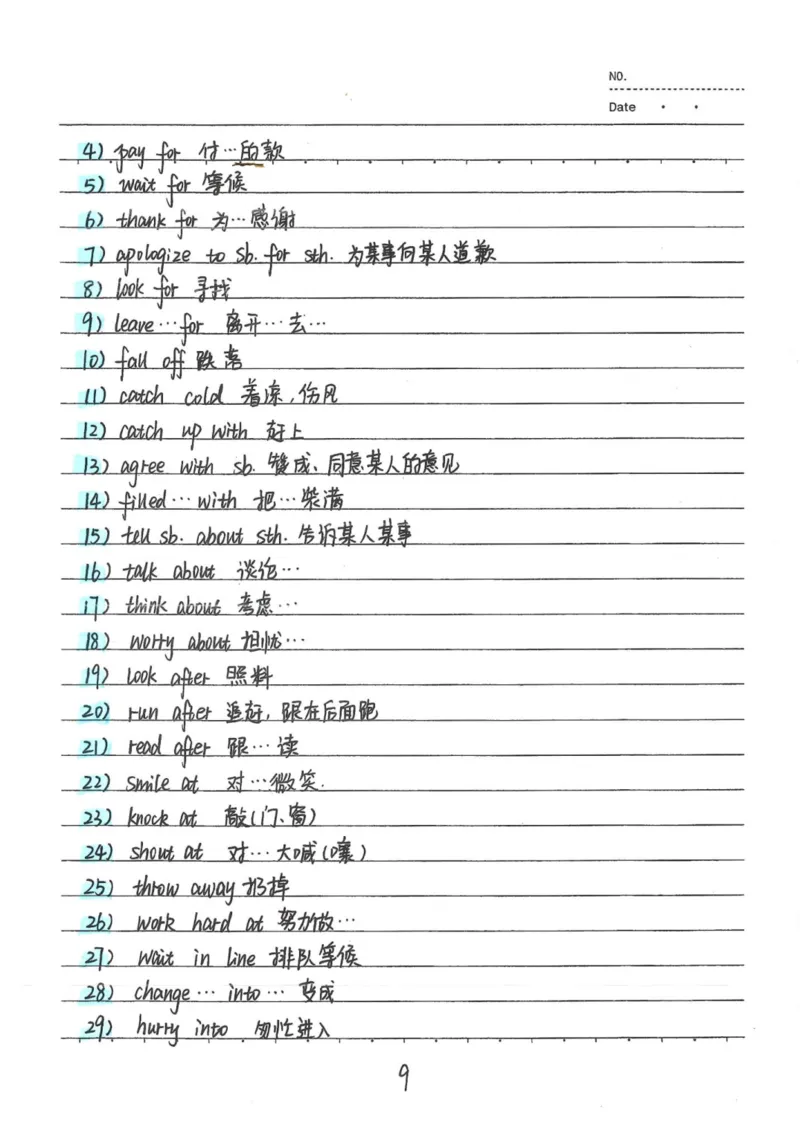 NO.
Date
4) pay for 付…的款
5) wait for 等候
6) thank for 为…感谢
7) apologize to sb. for sth. 为某事向某人道歉
8) look for 寻找
9) leave…for 离开…去…
10) fall off 跌落
11) catch cold 着凉,伤风
12) catch up with 赶上
13) agree with sb. 赞成、同意某人的意见
14) filled…with 把…装满
15) tell sb. about sth. 告诉某人某事
16) talk about 谈论…
17) think about 考虑…
18) worry about 担忧…
19) look after 照料
20) run after 追赶,跟在后面跑
21) read after 跟…读
22) smile at 对…微笑.
23) knock at 敲(门、窗)
24) shout at 对…大喊(嚷)
25) throw away 扔掉
26) work hard at 努力做…
27) wait in line 排队等候
28) change… into… 变成
29) hurry into 匆忙进入
9